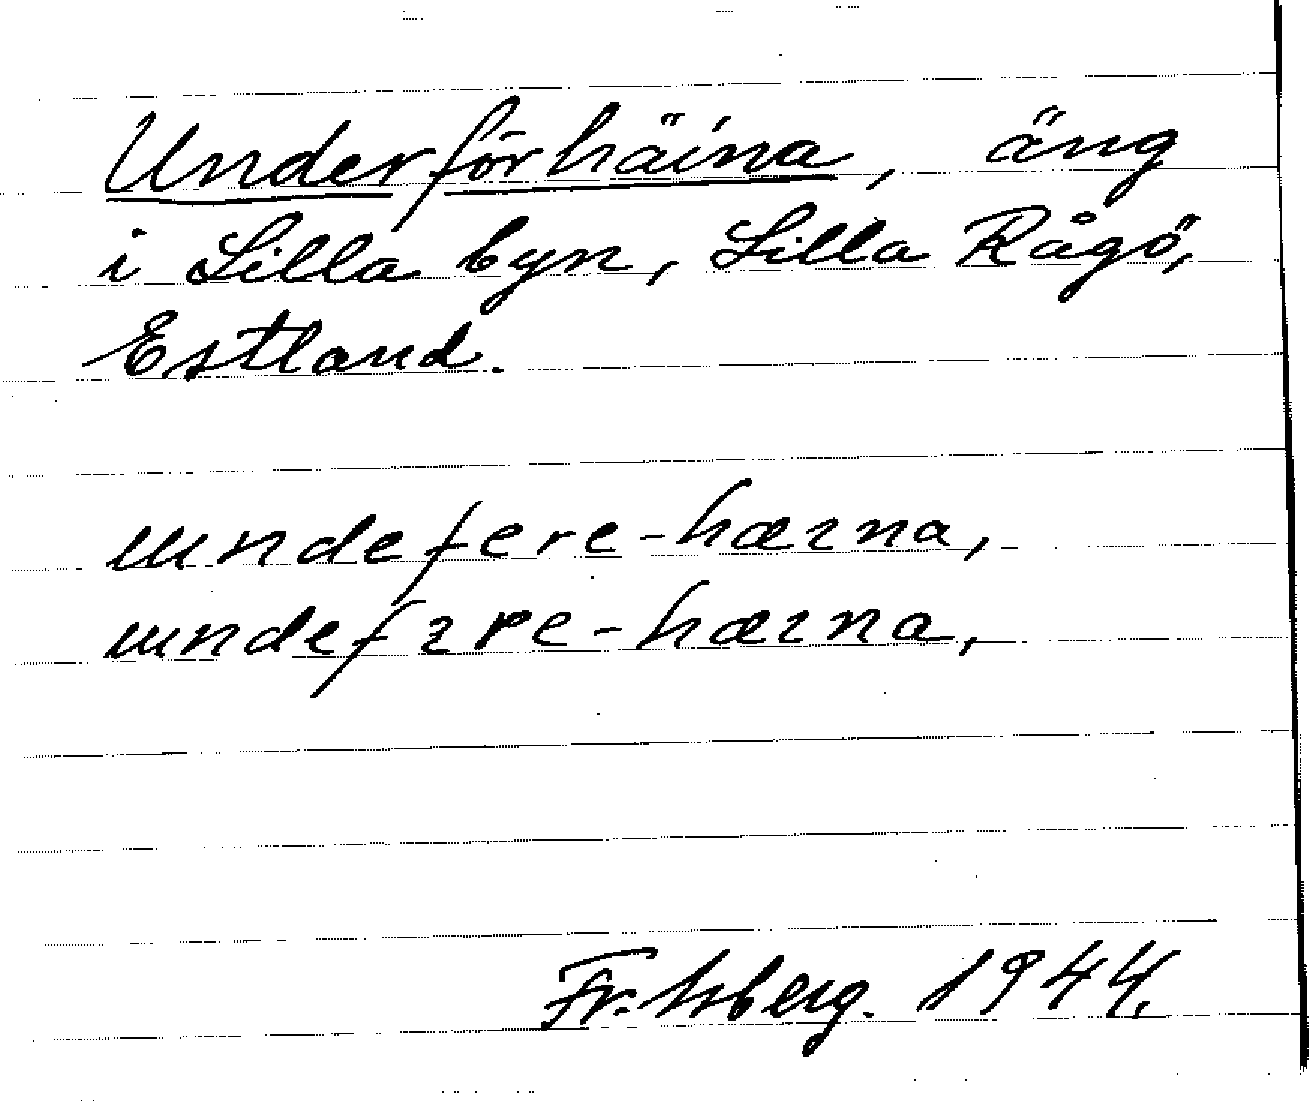 Underförhäina, äng
i Lilla byn, Lilla Rågö,
Estland.
ɯndefere-hæɪna,
ɯndefɪre-hæɪna,
Fr. Isberg. 1944.